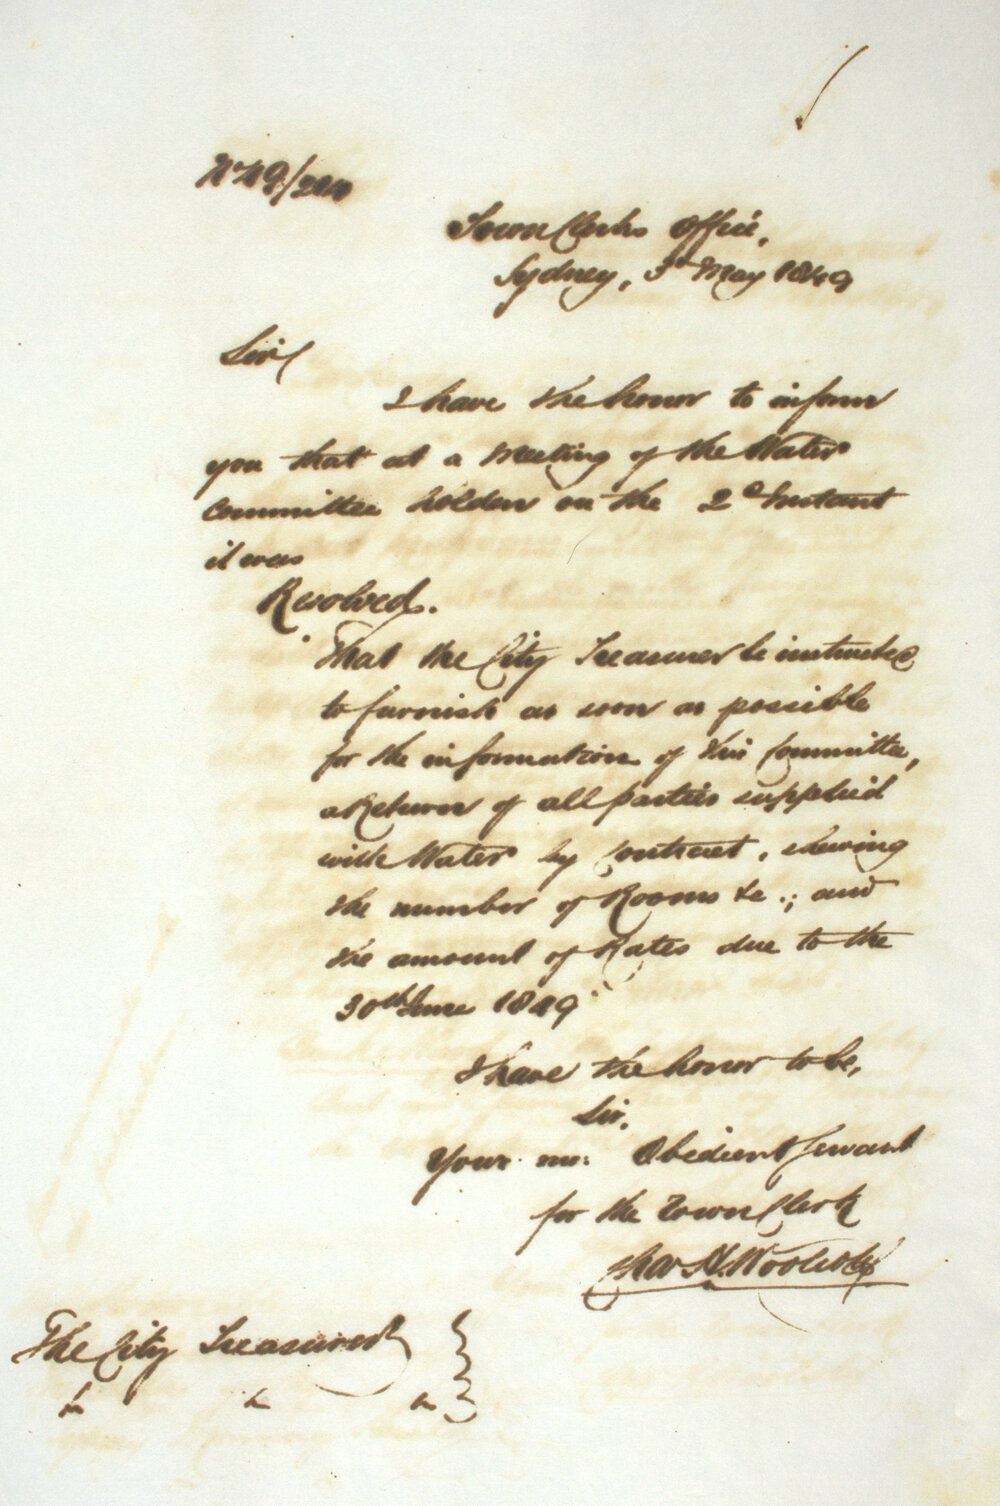 No 49/204
Town Clerks Office,
Sydney, 3d May 1849
Sir/
I have the honor to inform
you that at a Meeting of the Water
Committee holden on the 2d Instant
it was
Resolved.
"That the City Treasurer be instructed
to furnish as soon as possible
for the information of this Committee,
a Return of all parties supplied
with Water by Contract, shewing
the number of Rooms &c.; and
the amount of Rates due to the
30th June 1849"
I have the honor to be,
Sir,
Your mo: Obedient Servant
for the Town Clerk
Chas H. Woolcott
The City Treasurer